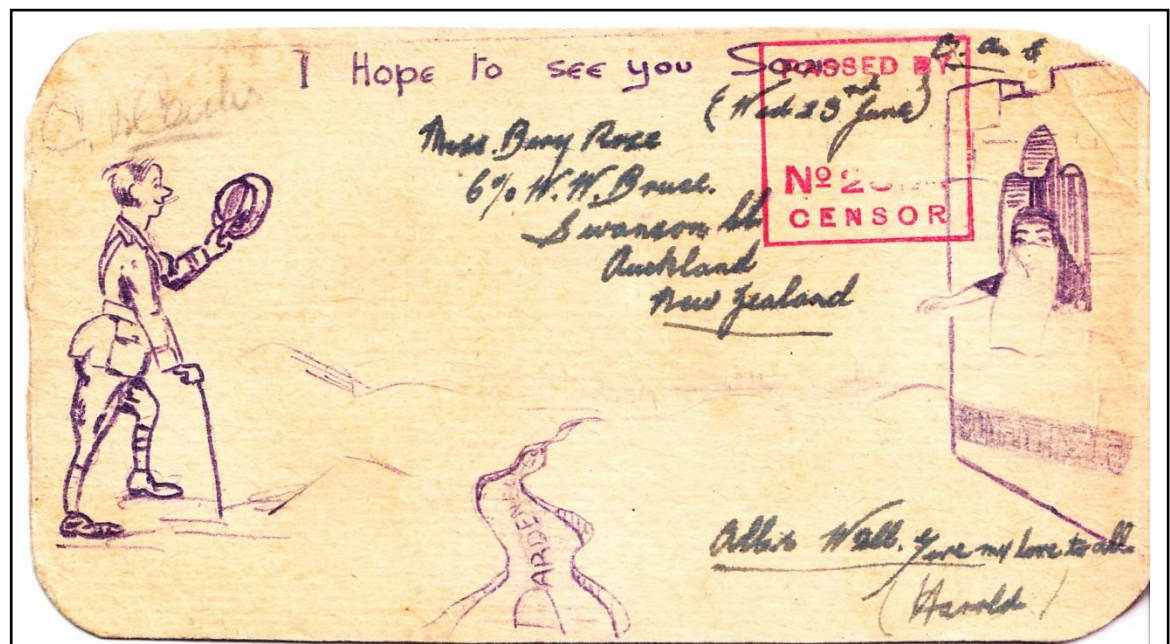 I Hope to see you Soon
O. a. S
PASSED BY
(Wed 23rd June)
Miss. Bery Rose
c/o W. W. Bruce.
Swanson St
Auckland
New Zealand
No 2
CENSOR
DARDENE
All is Well. give my love to all.
(Harold)